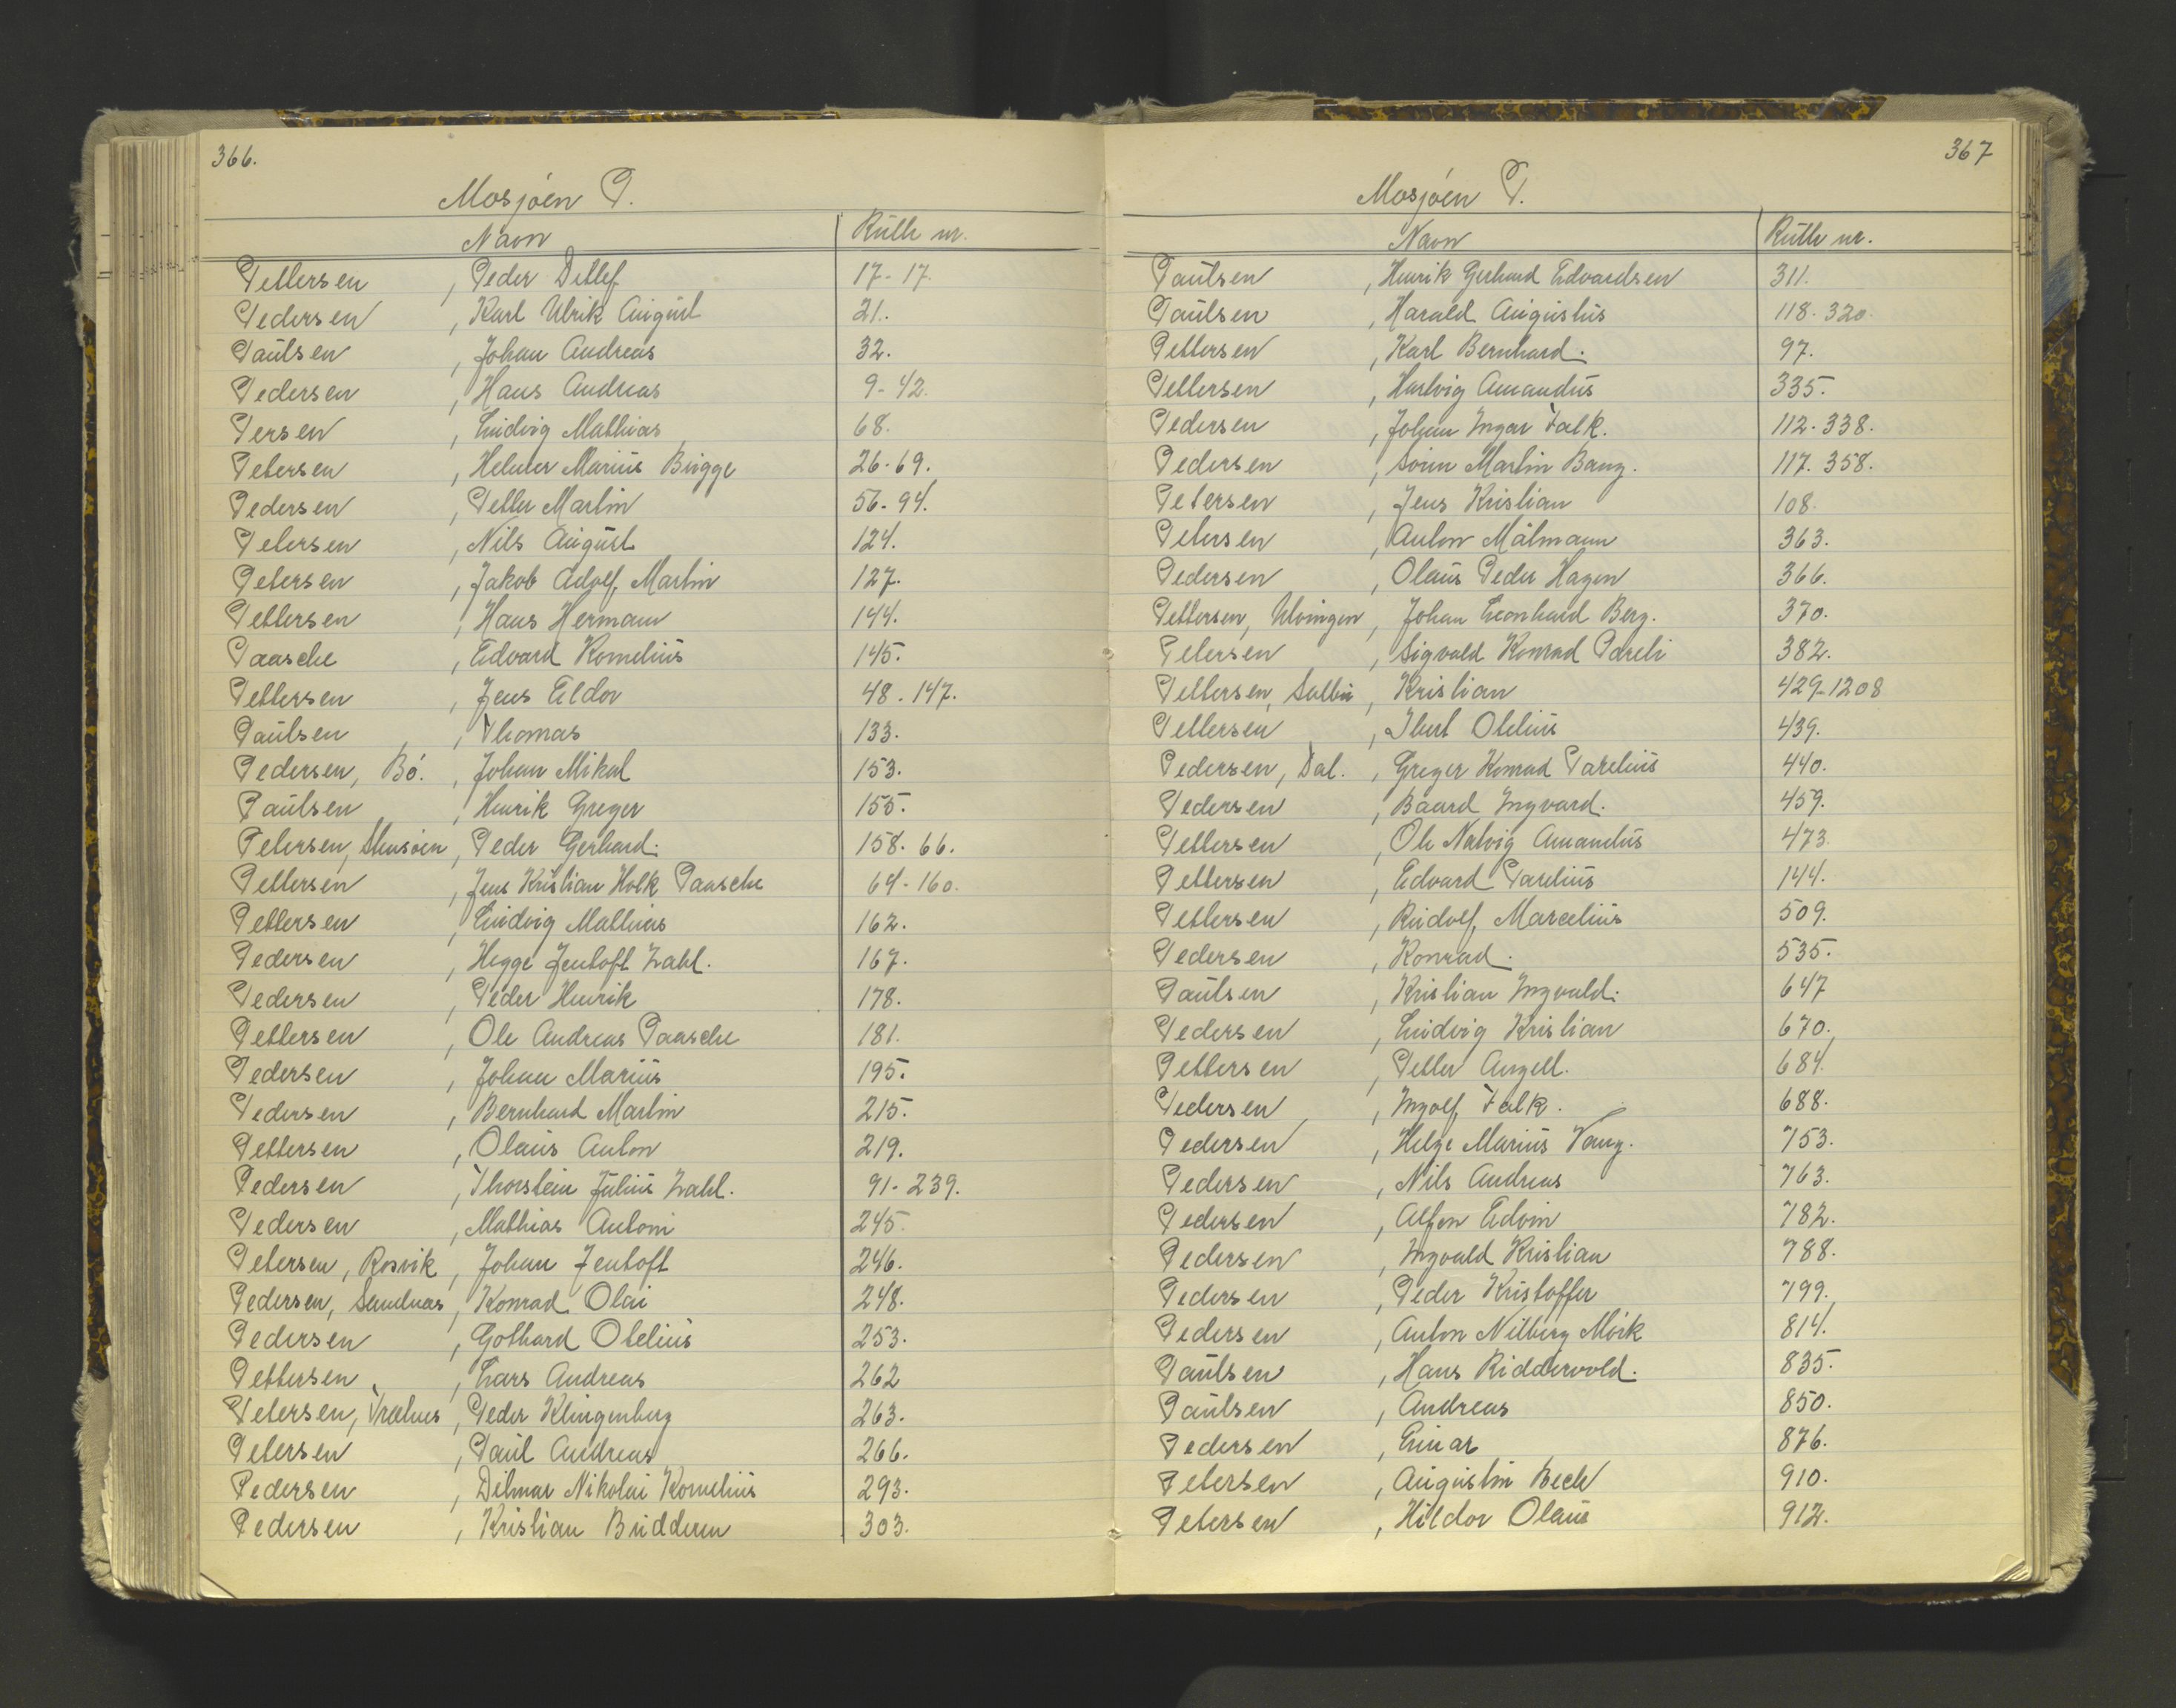 366.
Mosjøen P.
Navn Rulle nr.
Pettersen, Peder Detlef 17-17.
Pedersen, Karl Ulrik August 21.
Paulsen, Johan Andreas 32.
Pedersen, Hans Andreas 9-42.
Persen, Ludvig Mathias 68.
Petersen, Helmer Marius Brygge 26-69.
Pedersen, Petter Martin 56-94.
Petersen, Nils August 124.
Petersen, Jakob Adolf Martin 127.
Pettersen, Hans Herman 144.
Paasche, Edvard Kornelius 145.
Pettersen, Jens Eldor 48-147.
Paulsen, Thomas 133.
Pedersen, Bø., Johan Mikal 153.
Paulsen, Henrik Greger 155.
Petersen, Peder Gerhard. 158. 66.
Pettersen, Jens Kristian Holk Paasche 64-160.
Pettersen, Ludvig Mathias 162.
Pedersen, Hegge Jentoft Zahl. 167.
Pedersen, Peder Henrik 178.
Pettersen, Ole Andreas Paasche 181.
Pedersen, Johan Marius 195.
Pedersen, Bernhard Martin 215.
Pettersen, Olaus Anton 219.
Pedersen, Thorstein Julius Zahl. 91-239.
Pedersen, Mathias Antoni 245.
Petersen, Rosvik, Johan Jentoft 246.
Pedersen, Sandnes, Konrad Olai 248.
Pedersen, Gothard Otelius 253.
Pettersen, Lars Andreas 262
Petersen, Trælnes, Peder Klingenberg 263.
Petersen, Paul Andreas 266.
Pedersen, Dilmar Nikolai Kornelius 293.
Pedersen, Kristian Budderen 303.
367
Mosjøen P.
Navn Rulle nr.
Paulsen, Henrik Gerhard Edvardsen 311.
Paulsen, Harald Augustus 118. 320.
Pettersen, Karl Bernhard. 97.
Pettersen, Hartvig Amandus 335.
Pedersen, Johan Ingar Falk. 112-338.
Pedersen, Sørin Martin Bang. 117. 358.
Petersen, Jens Kristian 108.
Petersen, Anton Malmann 363.
Pedersen, Olaus Peder Hagen 366.
Pettersen, Ulvingen, Johan Leonhard Berg. 370.
Petersen, Sigvald Konrad Pareli 382.
Pettersen, Kristian 429-1208
Pettersen, Otelius 439.
Pedersen, Dal., Greger Konrad Parelius 440.
Pedersen, Baard Ingvard. 459.
Pettersen, Ole Natvig Amandus 473.
Pettersen, Edvard Parelius 144.
Pettersen, Rudolf Marcelius 509.
Pedersen, Konrad. 535.
Paulsen, Kristian Ingvald. 647
Pedersen, Ludvig Kristian 670.
Pettersen, Petter Angell. 684.
Pedersen, Ingolf Falk. 688.
Pedersen, Helge Marius Vang. 753.
Pedersen, Nils Andreas 763.
Pedersen, Alfon Edvin 782.
Pedersen, Ingvald Kristian 788.
Pedersen, Peder Kristoffer 799.
Pedersen, Anton Nilberg Mørk 814.
Paulsen, Hans Riddervold. 835.
Paulsen, Andreas 850.
Pedersen, Einar 876.
Petersen, Augustin Bech 910.
Petersen, Hildor Olaus 912.